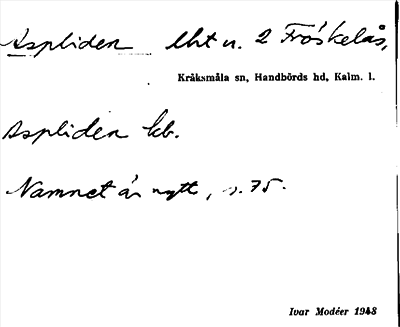 Aspliden lht u. 2 Fröskelås,
Kråksmåla sn, Handbörds hd, Kalm. l.
Aspliden kb.
Namnet är nytt, s. 75.
Ivar Modéer 1948